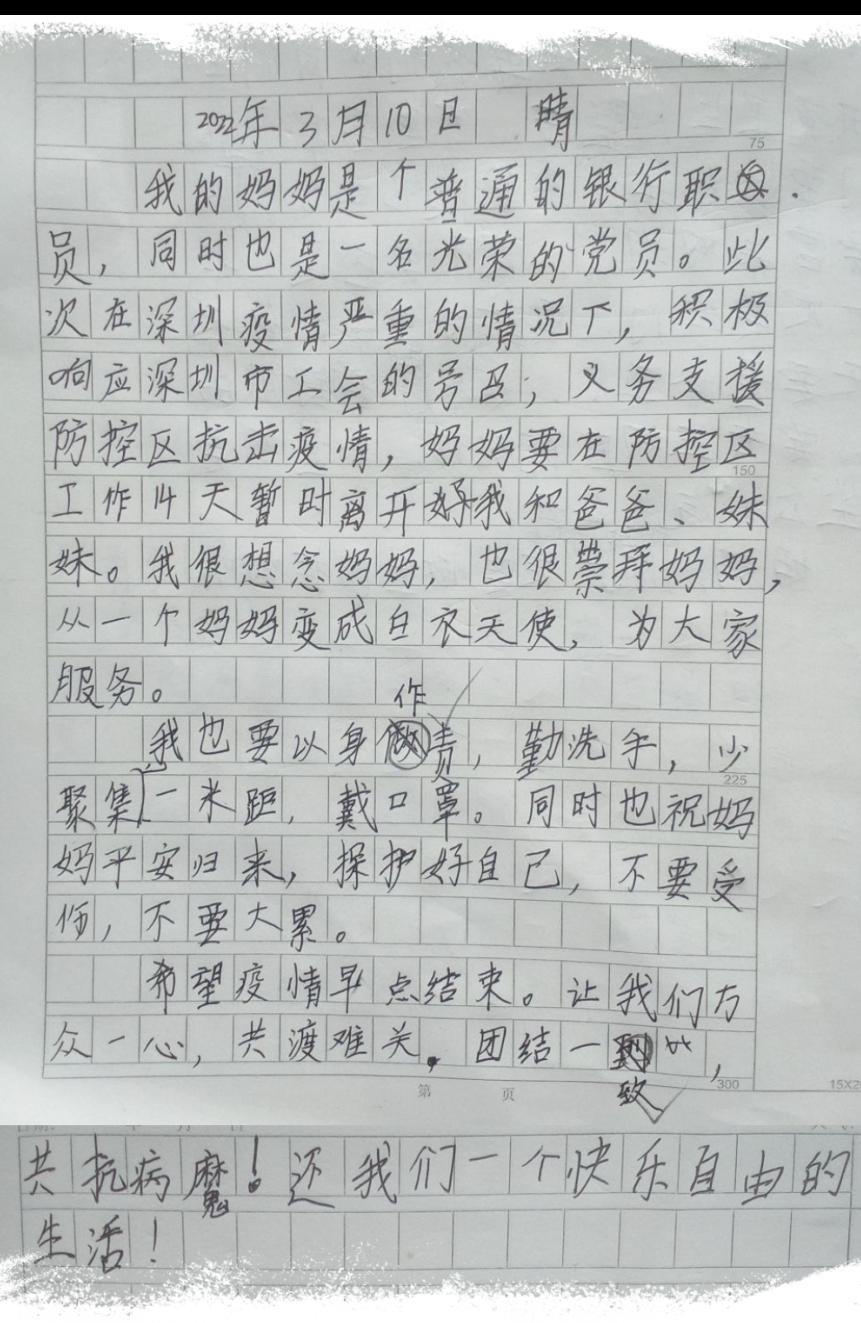 2022年3月10日 晴
75
我的妈妈是个普通的银行职
员,同时也是一名光荣的党员。此
次在深圳疫情严重的情况下,积极
响应深圳市工会的号召,义务支援
防控区抗击疫情,妈妈要在防控区
150
工作14天暂时离开好我和爸爸、妹
妹。我很想念妈妈,也很崇拜妈妈,
从一个妈妈变成白衣天使,为大家
服务。
作
我也要以身责,勤洗手,少
225
聚集一米距,戴口罩。同时也祝妈
妈平安归来,保护好自己,不要受
伤,不要大累。
希望疫情早点结束。让我们万
众一心,共渡难关,团结一
致
第 页
300
15X20
共抗病魔!还我们一个快乐自由的
生活!